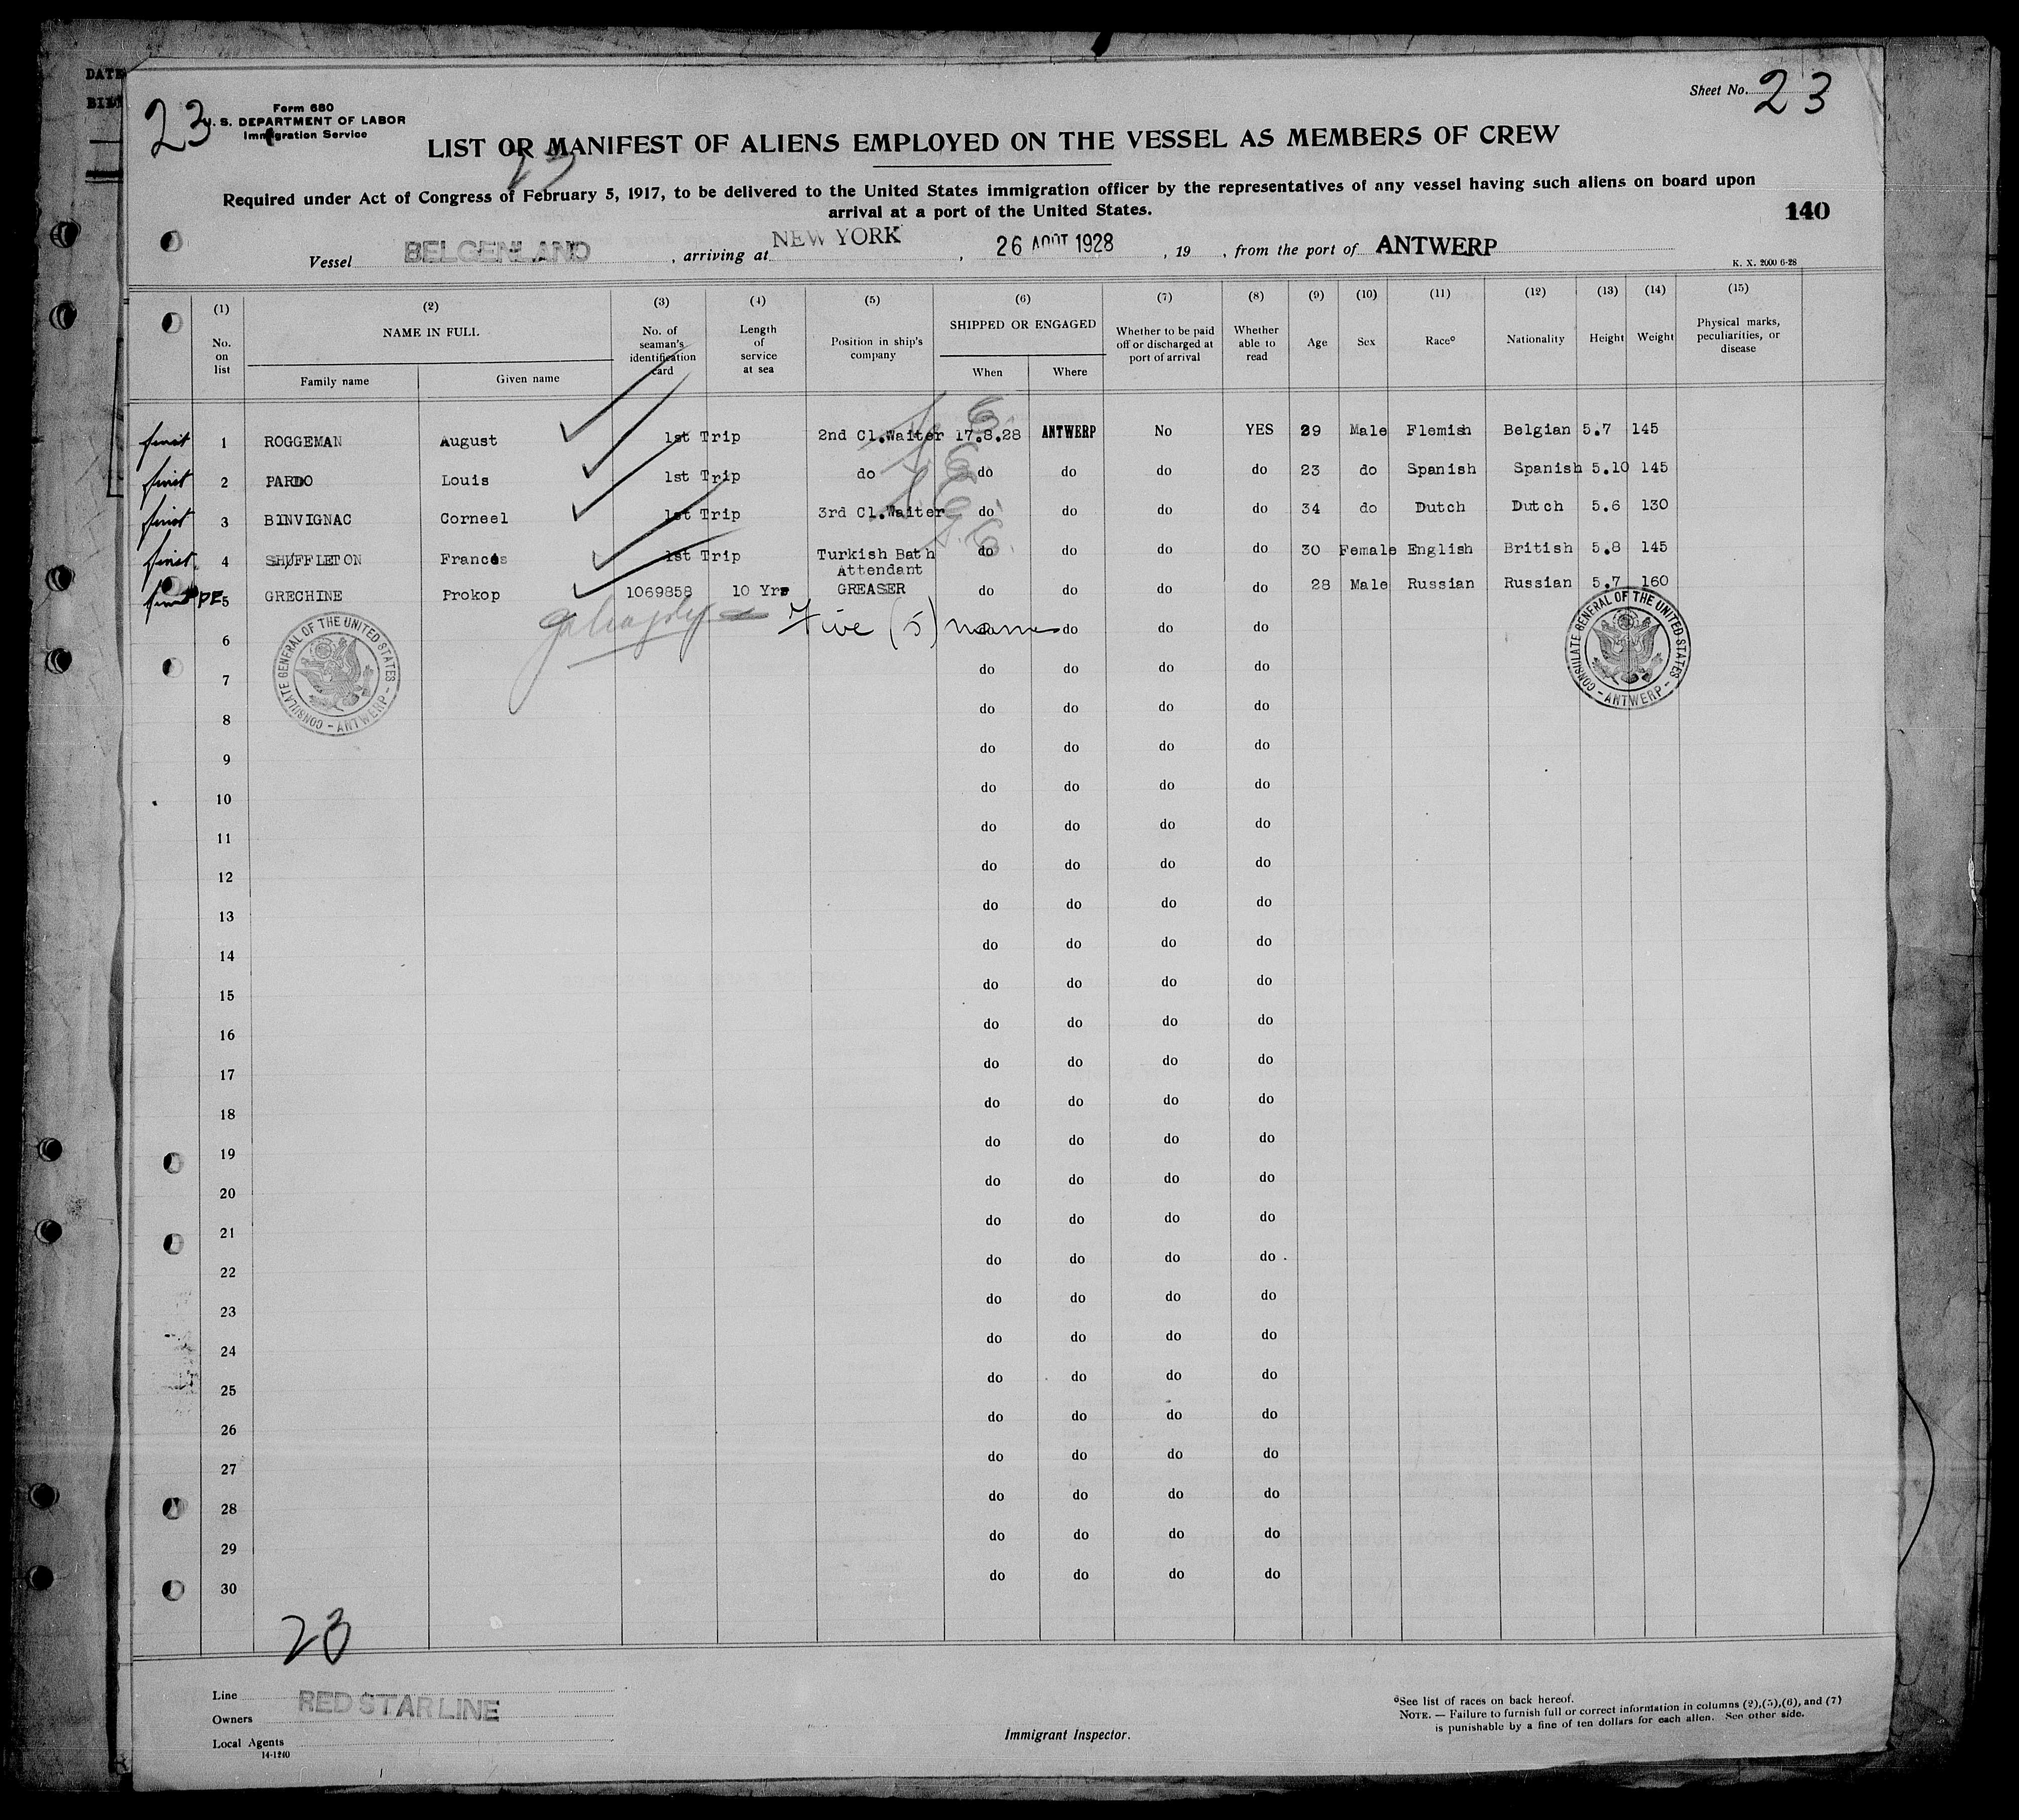 DATE
23
Form 680
U. S. DEPARTMENT OF LABOR
Immigration Service
Sheet No. 23
LIST OR MANIFEST OF ALIENS EMPLOYED ON THE VESSEL AS MEMBERS OF CREW
Required under Act of Congress of February 5, 1917, to be delivered to the United States immigration officer by the representatives of any vessel having such aliens on board upon
arrival at a port of the United States.
140
Vessel BELGENLAND, arriving at NEW YORK, 26 AOUT 1928, 19 , from the port of ANTWERP
K. X. 2000 6-28
(1) (2) (3) (4) (5) (6) (7) (8) (9) (10) (11) (12) (13) (14) (15)
No. on list NAME IN FULL Family name Given name No. of seaman's identification card Length of service at sea Position in ship's company SHIPPED OR ENGAGED When Where Whether to be paid off or discharged at port of arrival Whether able to read Age Sex Race° Nationality Height Weight Physical marks, peculiarities, or disease
1 ROGGEMAN August 1st Trip 2nd Cl.Waiter 17.8.28 ANTWERP No YES 29 Male Flemish Belgian 5.7 145
2 PARDO Louis 1st Trip do do do do do 23 do Spanish Spanish 5.10 145
3 BINVIGNAC Corneel 1st Trip 3rd Cl.Waiter do do do do 34 do Dutch Dutch 5.6 130
4 SHUFFLETON Frances 1st Trip Turkish Bath Attendant do do do do 30 Female English British 5.8 145
PE 5 GRECHINE Prokop 1069858 10 Yrs GREASER do do do do 28 Male Russian Russian 5.7 160
6 Five (5) names do do do
CONSULATE GENERAL OF THE UNITED STATES - ANTWERP -
CONSULATE GENERAL OF THE UNITED STATES - ANTWERP -
7 do do do do
8 do do do do
9 do do do do
10 do do do do
11 do do do do
12 do do do do
13 do do do do
14 do do do do
15 do do do do
16 do do do do
17 do do do do
18 do do do do
19 do do do do
20 do do do do
21 do do do do
22 do do do do
23 do do do do
24 do do do do
25 do do do do
26 do do do do
27 do do do do
28 do do do do
29 do do do do
30 do do do do
23
Line RED STAR LINE
Owners
Local Agents
14-1240
Immigrant Inspector.
°See list of races on back hereof.
NOTE. — Failure to furnish full or correct information in columns (2),(5),(6), and (7)
is punishable by a fine of ten dollars for each alien. See other side.